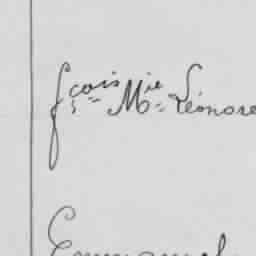 fçois Mie Léonore
Emmanuel